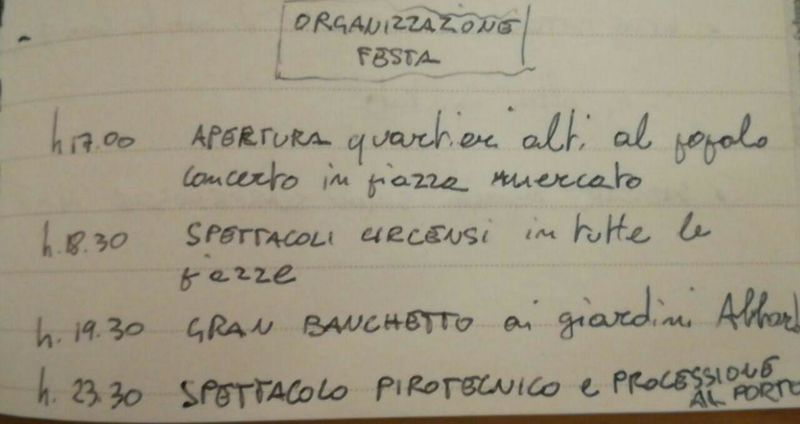 ORGANIZZAZIONE
FESTA
h.17.00 APERTURA quartieri alti al popolo
concerto in piazza mercato
h.18.30 SPETTACOLI CIRCENSI in tutte le
piazze
h. 19.30 GRAN BANCHETTO ai giardini
h. 23.30 SPETTACOLO PIROTECNICO e PROCESSIONE
AL PORTO